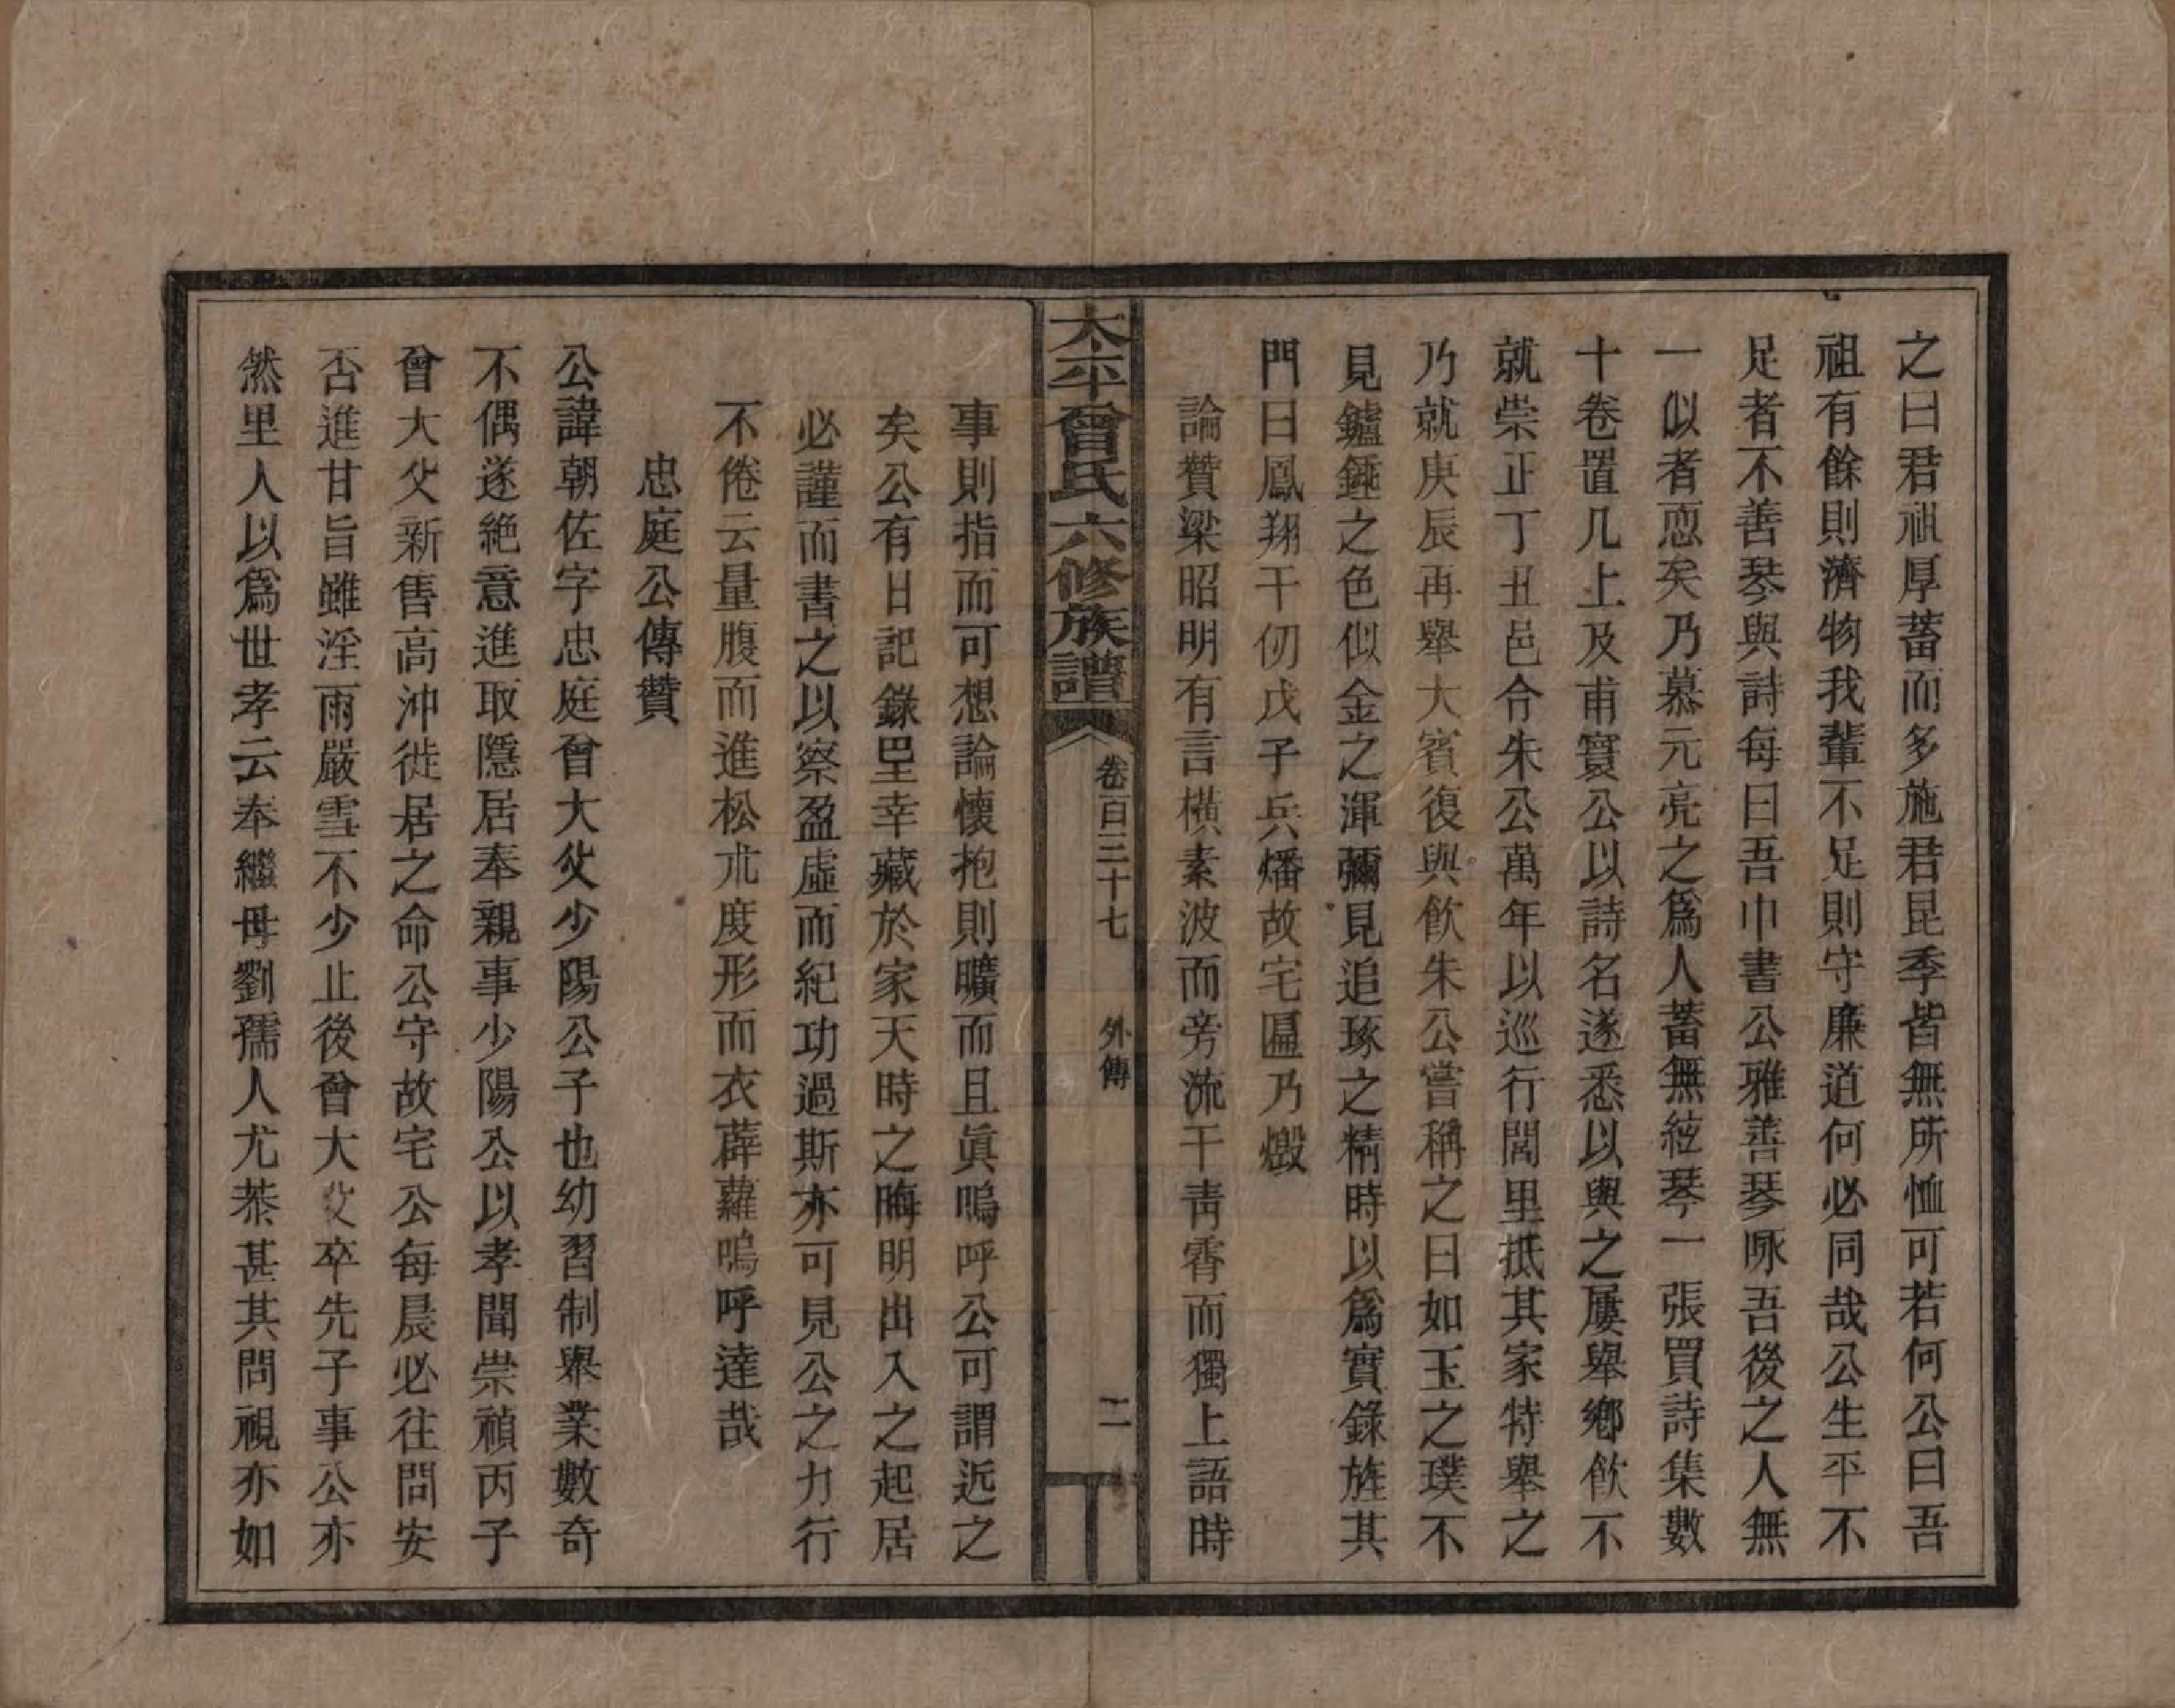 之曰君祖厚蓄而多施君昆季皆無所恤可若何公曰吾
祖有餘則濟物我輩不足則守廉道何必同哉公生平不
足者不善琴與詩每曰吾巾書公雅善琴咏吾後之人無
一似者恧矣乃慕元亮之爲人蓄無絃琴一張買詩集數
十卷置几上及甫實公以詩名遂悉以與之屢舉鄉飲不
就崇正丁丑邑令朱公萬年以巡行閭里抵其家特舉之
乃就庚辰再舉大賓復與飲朱公嘗稱之曰如玉之璞不
見鑪錘之色似金之渾彌見追琢之精時以爲實錄旌其
門曰鳳翔千仞戊子兵燔故宅匾乃燬
論贊梁昭明有言橫素波而旁流干靑霄而獨上語時
太平曾氏六修族譜
卷百三十七
外傳
二
事則指而可想論懷抱則曠而且眞嗚呼公可謂近之
矣公有日記錄至幸藏於家天時之晦明出入之起居
必謹而書之以察盈虛而紀功過斯亦可見公之力行
不倦云量腹而進松朮度形而衣薜蘿嗚呼達哉
忠庭公傳贊
公諱朝佐字忠庭曾大父少陽公子也幼習制舉業數奇
不偶遂絶意進取隱居奉親事少陽公以孝聞崇禎丙子
曾大父新售高沖徙居之命公守故宅公每晨必往問安
否進甘旨雖淫雨嚴雪不少止後曾大父卒先子事公亦
然里人以爲世孝云奉繼母劉孺人尤恭甚其問視亦如